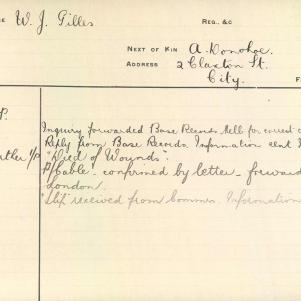 W. J. Gilles
Reg., &c
Next of Kin A. Donohoe.
Address 2 Claxton St.
City.
P.
Inquiry forwarded Base Records Melb for correct
Reply from Base Records. Information sent
"Died of Wounds".
P/Cable - confirmed by letter - forward
London.
"Slip" received from Commrs. Information